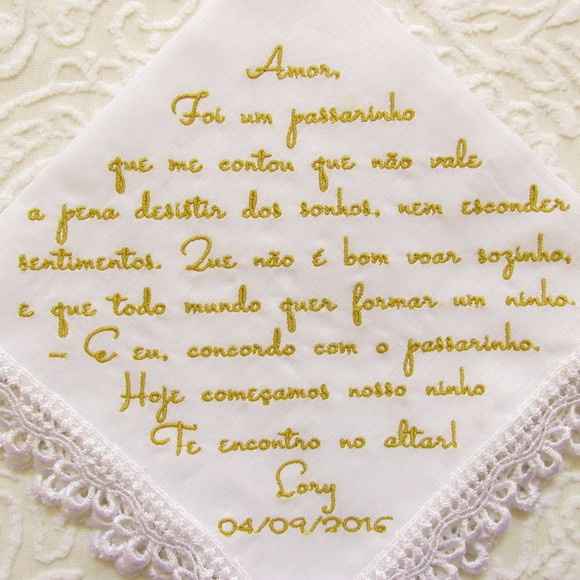 Amor,
Foi um passarinho
que me contou que não vale
a pena desistir dos sonhos, nem esconder
sentimentos. Que não é bom voar sozinho,
e que todo mundo quer formar um ninho.
- E eu, concordo com o passarinho.
Hoje começamos nosso ninho
Te encontro no altar!
Lory
04/09/2016